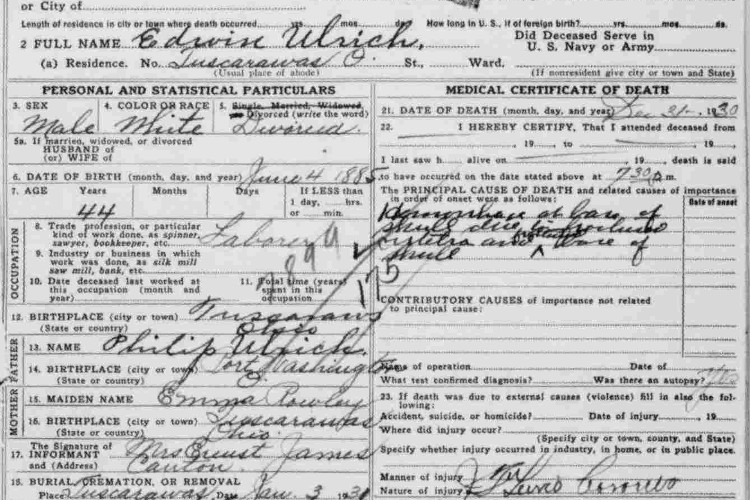 or City of
Length of residence in city or town where death occurred yrs. mos. ds. How long in U. S., if of foreign birth? yrs. mos. ds.
2 FULL NAME Edwin Ulrich,
Did Deceased Serve in
U. S. Navy or Army
(a) Residence. No. Tuscarawas O. St., Ward.
(Usual place of abode) (If nonresident give city or town and State)
PERSONAL AND STATISTICAL PARTICULARS
3. SEX 4. COLOR OR RACE 5. Single, Married, Widowed,
or Divorced (write the word)
Male White Divorced.
5a. If married, widowed, or divorced
HUSBAND of
(or) WIFE of
6. DATE OF BIRTH (month, day, and year) June 4 1885
7. AGE Years Months Days If LESS than
1 day, hrs.
or min.
44
OCCUPATION
8. Trade, profession, or particular
kind of work done, as spinner,
sawyer, bookkeeper, etc. Laborer
9. Industry or business in which
work was done, as silk mill
saw mill, bank, etc.
10. Date deceased last worked at
this occupation (month and
year)
11. Total time (years)
spent in this
occupation
12. BIRTHPLACE (city or town) Tuscarawas
(State or country) Ohio
FATHER
13. NAME Philip Ulrich.
14. BIRTHPLACE (city or town) Port Washington
(State or country) O.
MOTHER
15. MAIDEN NAME Emma Rowley
16. BIRTHPLACE (city or town) Tuscarawas
(State or country) Ohio.
17. The Signature of
INFORMANT Mrs Ernest James
and (Address) Canton.
18. BURIAL, CREMATION, OR REMOVAL
Place Tuscarawas Date Jan. 3 1931
MEDICAL CERTIFICATE OF DEATH
21. DATE OF DEATH (month, day, and year) Dec 31 1930
22. I HEREBY CERTIFY, That I attended deceased from
, 19 , to , 19
I last saw h alive on , 19 , death is said
to have occurred on the date stated above at 730 m.
The PRINCIPAL CAUSE OF DEATH and related causes of importance
in order of onset were as follows: Date of onset
Hemorrhage at base of
skull due to
and base of
skull
CONTRIBUTORY CAUSES of importance not related
to principal cause:
Name of operation Date of
What test confirmed diagnosis? Was there an autopsy?
23. If death was due to external causes (violence) fill in also the fol-
lowing:
Accident, suicide, or homicide? Date of injury , 19
Where did injury occur?
(Specify city or town, county, and State)
Specify whether injury occurred in industry, in home, or in public place.
Manner of injury
Nature of injury